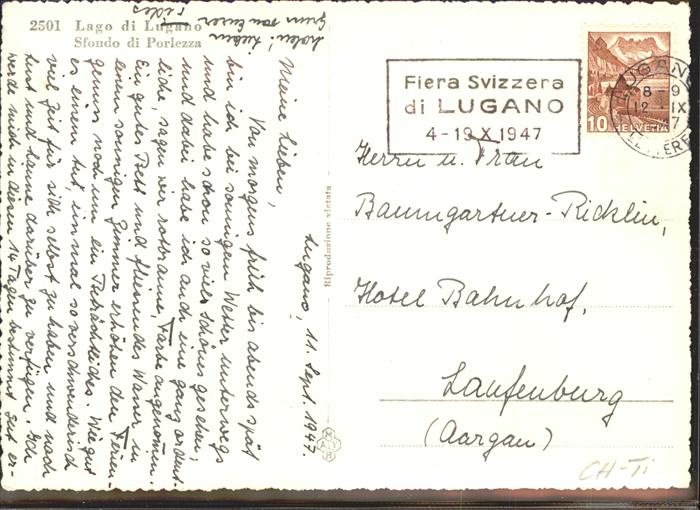 2501 Lago di Lugano
Sfondo di Porlezza
Riproduzione vietata
Fiera Svizzera
di LUGANO
4-19 X 1947
LUGANO
8-9
12 IX
LETTERE
10 HELVETIA
Herrn u. Frau
Baumgartner-Ricklin,
Hotel Bahnhof,
Laufenburg
(Aargau)
CH-Ti
Lugano, 11. Sept. 1947.
Meine Lieben,
Von morgens früh bis abends spät
bin ich bei sonnigem Wetter unterwegs
und habe schon so viel Schönes gesehen,
und dabei habe ich auch eine ganz ordent-
liche, sagen wir rotbraune, Farbe angenommen.
Ein gutes Bett und fliessendes Wasser in
einem sonnigen Zimmer erhöhen den Ferien-
genuss noch um ein Beträchtliches. Wie gut
es einem tut, einmal so verschwenderisch
viel Zeit für sich selbst zu haben und nach
Lust und Laune darüber zu verfügen. Ich
werde mich in den 14 Tagen bestimmt gut er-
holen! Lieben
Gruss von Eurer